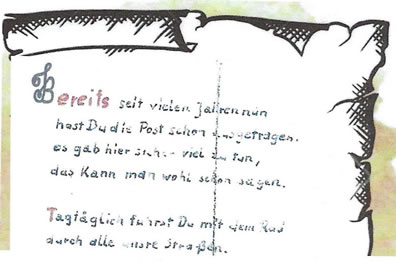 Bereits seit vielen Jahren nun
hast Du die Post schon ausgetragen.
es gab hier sicher viel zu tun,
das Kann man wohl schon sagen.
Tagtäglich fuhrst Du mit dem Rad
durch alle unsre Straßen.